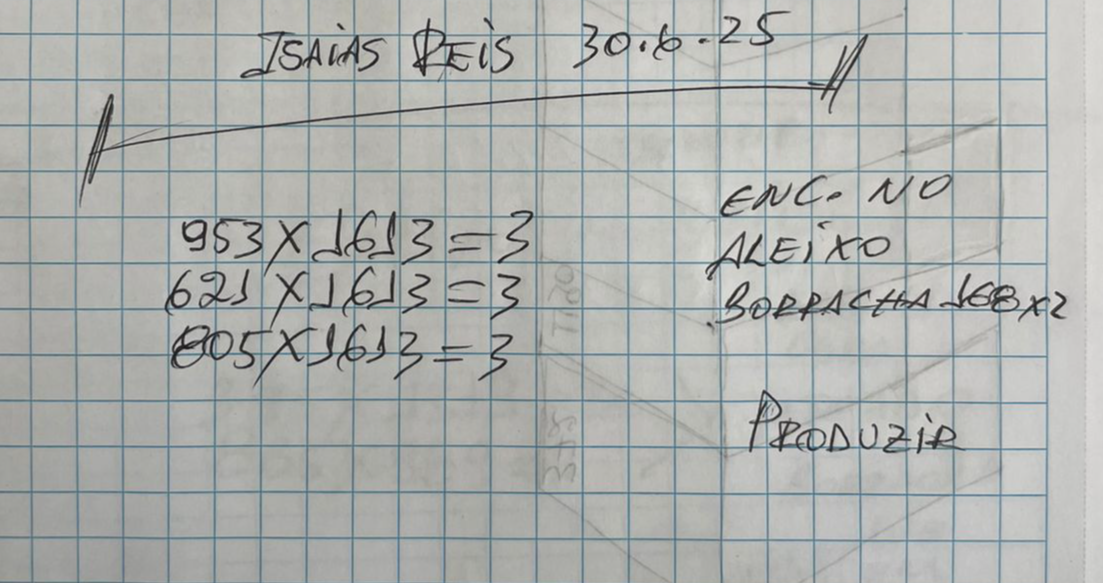 ISAIAS REIS 30.6.25
953 X 1613 = 3
621 X 1613 = 3
805 X 1613 = 3
ENC. NO
ALEIXO
BORRACHA 168 X2
PRODUZIR